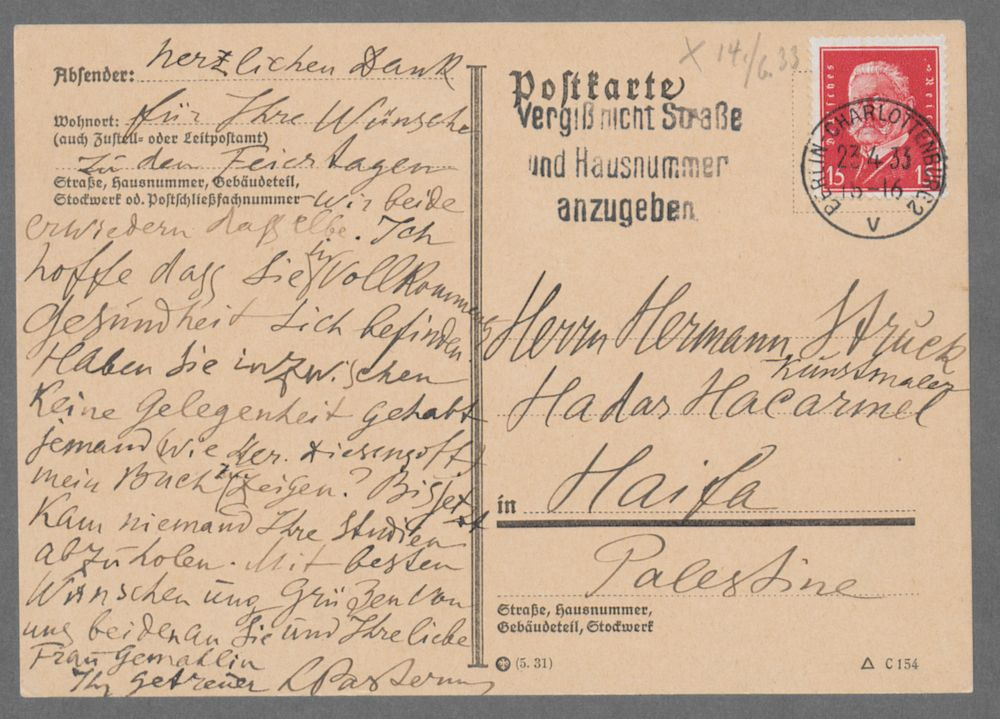 Absender: herzlichen Dank
Wohnort: für Ihre Wünsche
(auch Zustell- oder Leitpostamt)
zu den Feiertagen
Straße, Hausnummer, Gebäudeteil,
Stockwerk od. Postschließfachnummer
Wir beide
erwiedern dasselbe. Ich
hoffe dass Sie in Vollkommene
Gesundheit sich befinden.
Haben Sie inzwischen
Keine Gelegenheit gehabt
jemand wie Her. Diesengoff
mein Buch zu zeigen? Bis jetzt
Kam niemand Ihre Studien
abzuholen. Mit besten
Wünschen und Grüßen von
uns beiden an Sie und Ihre liebe
Frau Gemahlin
Ihr getreuer L Pasternak
Postkarte
x 14./6.33
Vergiß nicht Straße
und Hausnummer
anzugeben
Deutsches Reich
15 15
BERLIN-CHARLOTTENBURG 2
23.4.33
15-16
V
Herrn Hermann Struck
Kunstmaler
Hadar Hacarmel
in Haifa
Palestine
Straße, Hausnummer,
Gebäudeteil, Stockwerk
(5. 31)
Δ C 154